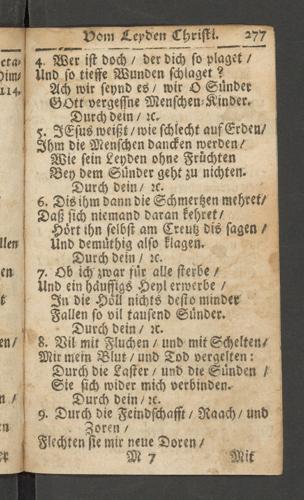 Vom Leyden Christi. 277
4. Wer ist doch / der dich so plaget /
Und so tieffe Wunden schlaget?
Ach wir seynd es / wir O Sünder
GOtt vergessne Menschen-Kinder.
Durch dein / ꝛc.
5. JEsus weißt / wie schlecht auf Erden /
Ihm die Menschen dancken werden /
Wie sein Leyden ohne Früchten
Bey dem Sünder geht zu nichten.
Durch dein / ꝛc.
6. Dis ihm dann die Schmertzen mehret /
Daß sich niemand daran kehret /
Hört ihn selbst am Creutz dis sagen /
Und demüthig also klagen.
Durch dein / ꝛc.
7. Ob ich zwar für alle sterbe /
Und ein häuffigs Heyl erwerbe /
In die Höll nichts desto minder
Fallen so vil tausend Sünder.
Durch dein / ꝛc.
8. Vil mit Fluchen / und mit Schelten /
Mir mein Blut / und Tod vergelten:
Durch die Laster / und die Sünden /
Sie sich wider mich verbinden.
Durch dein / ꝛc.
9. Durch die Feindschafft / Raach / und
Zoren /
Flechten sie mir neue Doren /
M 7 Mit